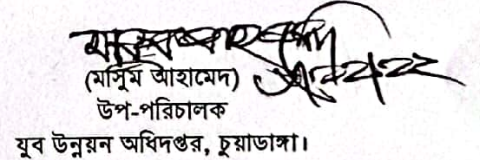 (মাসুম আহামেদ)
উপ-পরিচালক
যুব উন্নয়ন অধিদপ্তর, চুয়াডাঙ্গা।